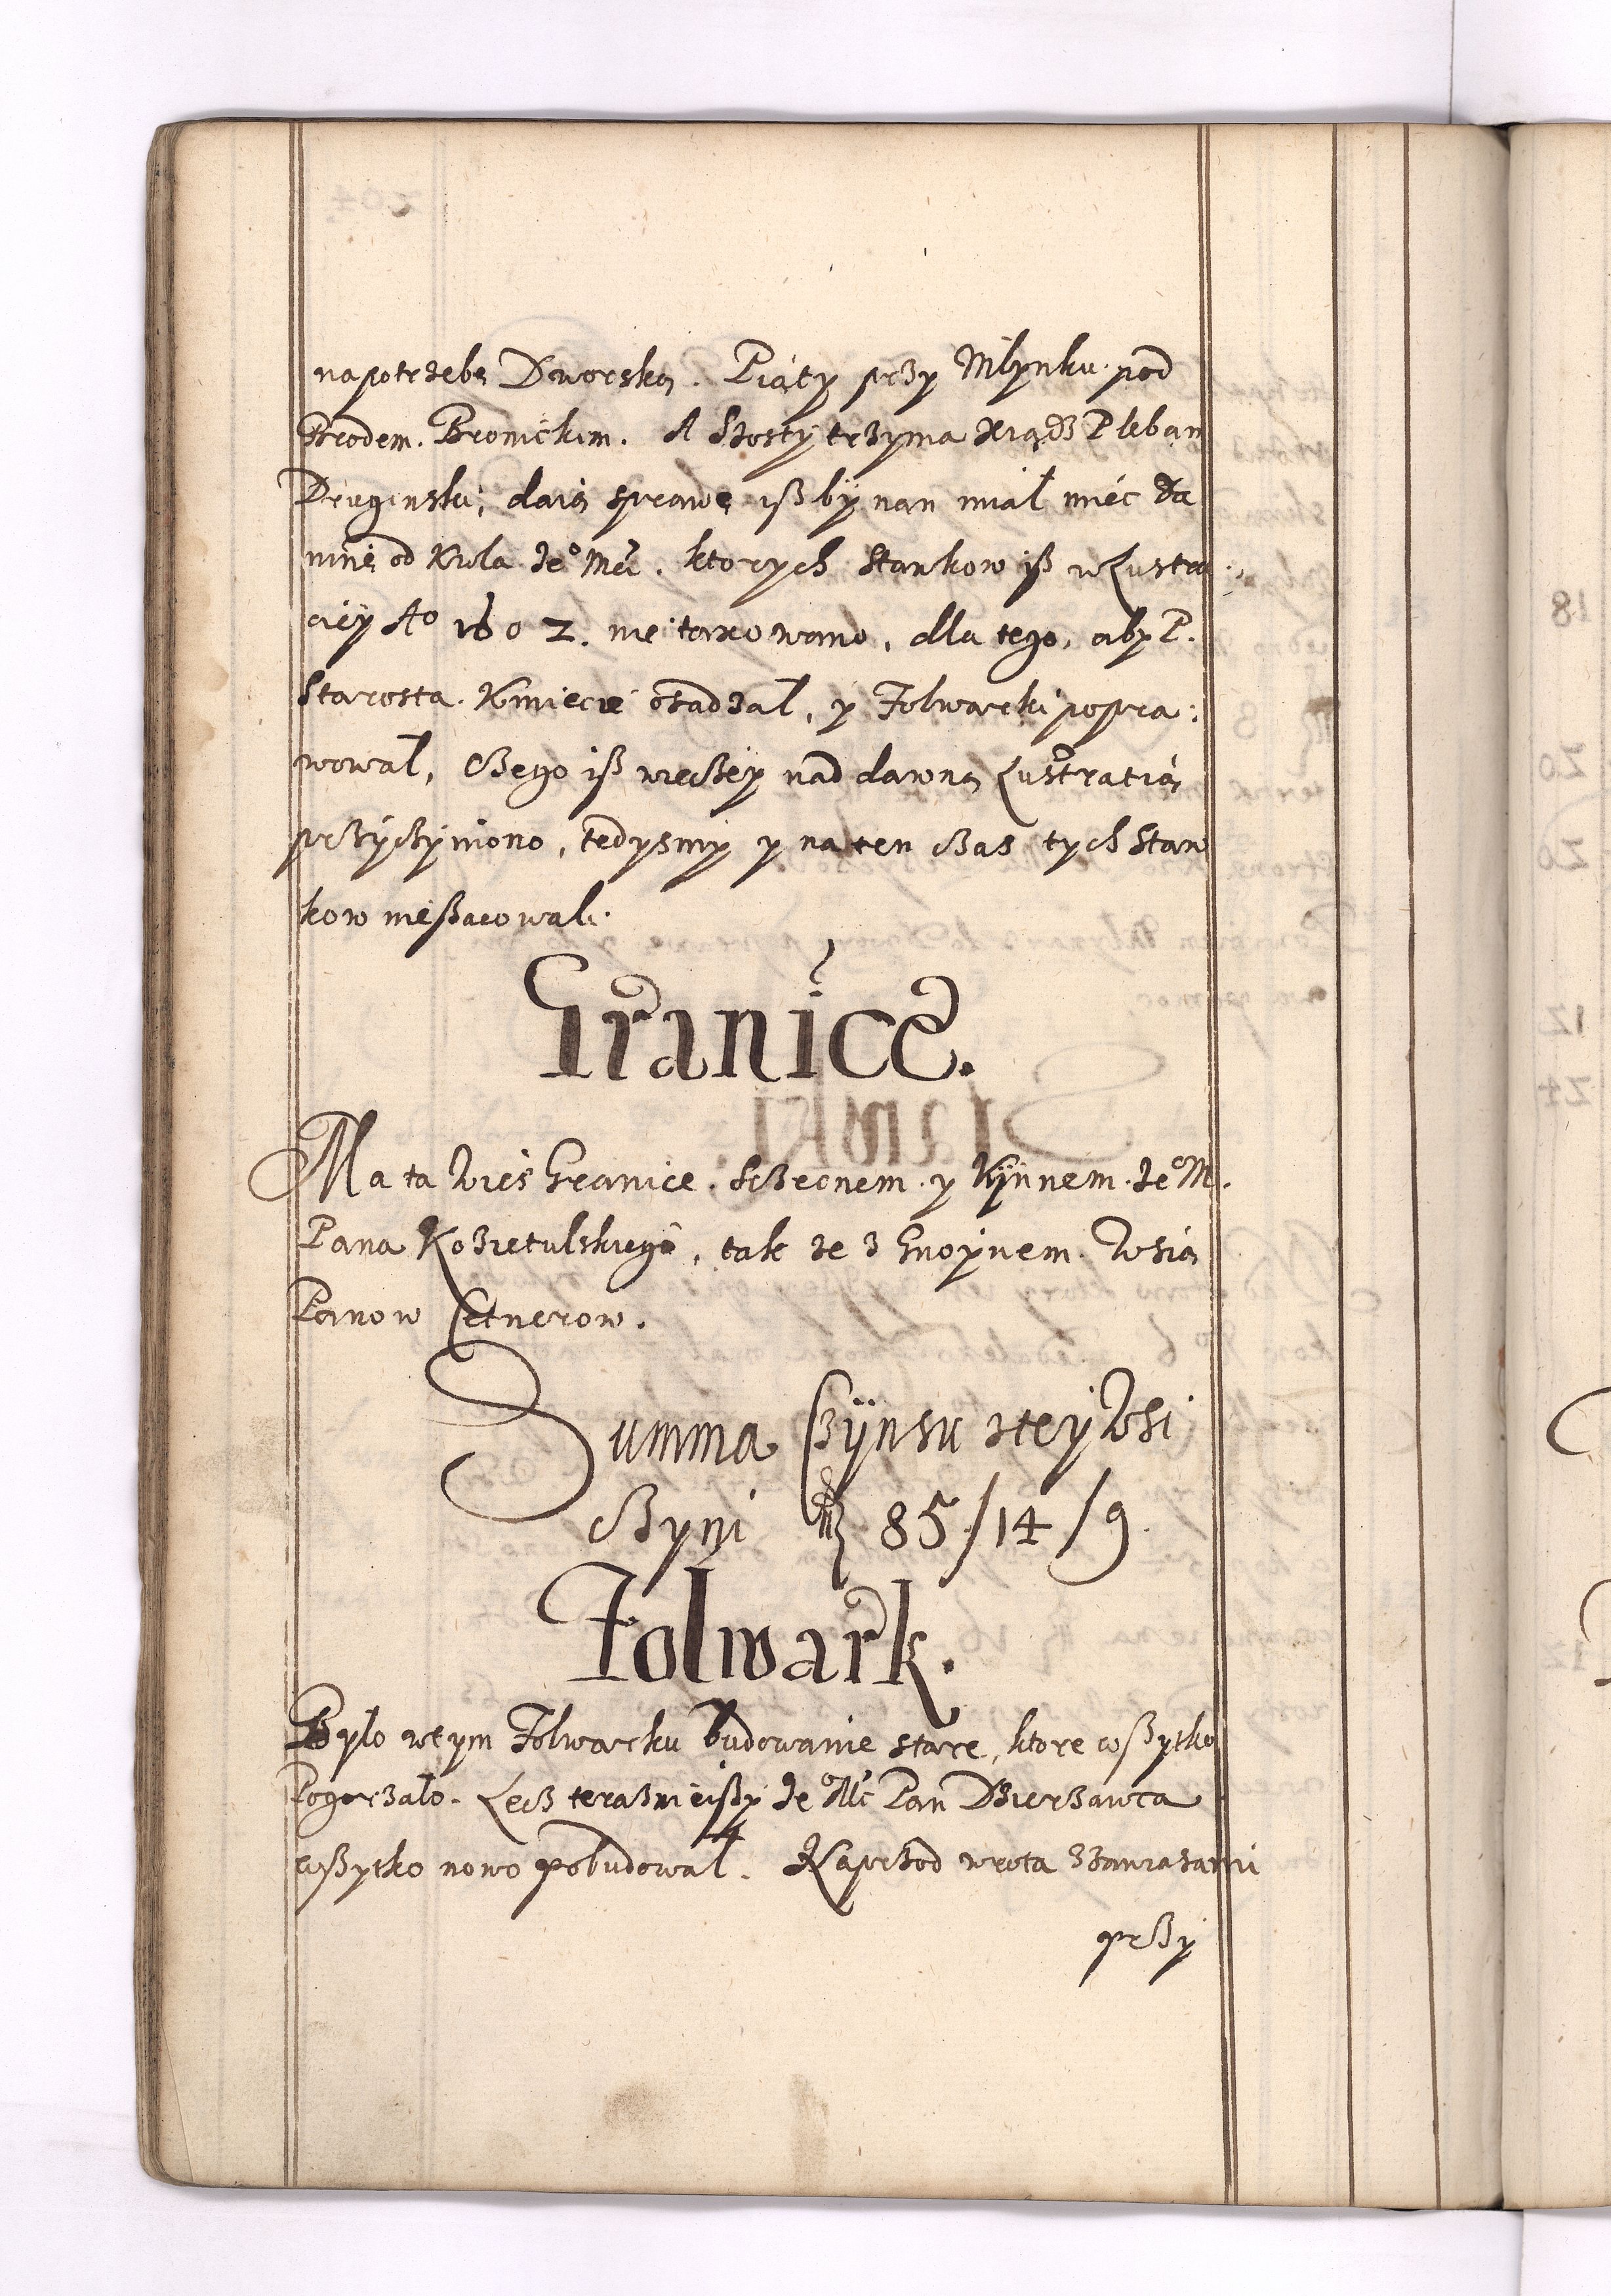 na potrzebę Dworską. Piąty przy Młynku pod
Brodem. Bronickim. A Szosty trzyma Xiądz Pleban
Drugenski, daią sprawę iß by nan miał mieć da
ninę od Krola Jeº Mći. ktorych Stawkow iß w Lustra
ciey Aº 1602. nie taxowano, dla tego, aby P.
Starosta Kmiecie osadzał, y Folwarki popra:
wował, Czego iß wieczey nad dawną Lustratią
przyczyniono, tedysmy y na ten czas tych Staw
kow nie ßacowali.
Granice.
Ma ta Wieś Granice. S Czeronem y Kijnnem Jeº M.
Pana Kozietulskiego, tak ze z Gnoynem Wsią
Panow Cetnerow.
Summa Czynsu z tey Wsi
Czyni fl 85/14/9.
Folwark.
Bylo w tym Folwarku budowanie stare, ktore wßytko
Pogorzało. Lecz teraznieißy Jeº Mć Pan Dzierzawca
wßytko nowo pobudował. Naprzod wrota z zawiasami
przy
18
20
20
12
24
12